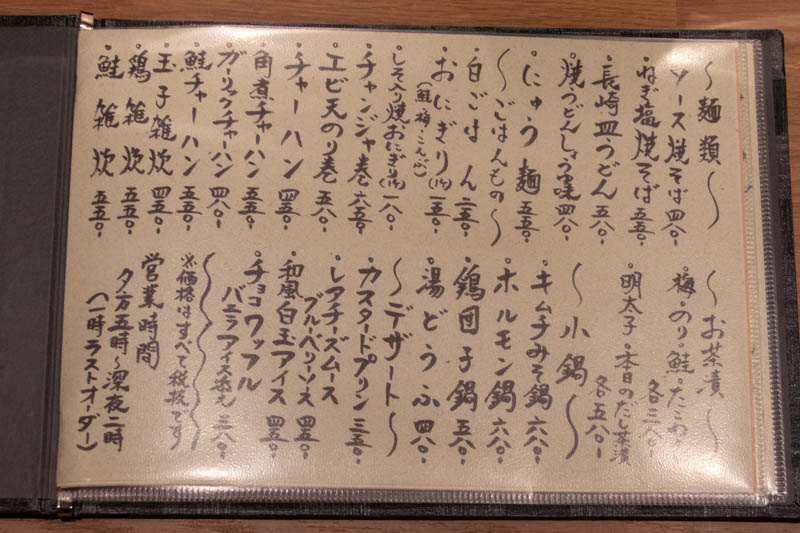 〜麺類〜
ソース焼そば 四八〇-
・ねぎ塩焼そば 五五〇-
・長崎皿うどん 五八〇-
・焼うどんしょうゆ味 四八〇-
・にゅう麺 五五〇-
〜ごはんもの〜
・白ごはん 二五〇-
・おにぎり(1ヶ) 一五〇-
(鮭・梅・こんぶ)
・しそ入り焼おにぎり(1ヶ) 一八〇-
・チャンジャ巻 六五〇-
・エビ天のり巻 五八〇-
・チャーハン 四五〇-
・角煮チャーハン 五五〇-
・ガーリックチャーハン 四八〇-
・鮭チャーハン 五五〇-
・玉子雑炊 四五〇-
・鶏雑炊 五五〇-
・鮭雑炊 五五〇-
〜お茶漬〜
・梅・のり・鮭・たこわさ
各三八〇-
・明太子・本日のだし茶漬
各五八〇-
〜小鍋〜
・キムチみそ鍋 六八〇-
・ホルモン鍋 六八〇-
・鶏団子鍋 五八〇-
・湯どうふ 四八〇-
〜デザート〜
・カスタードプリン 三五〇-
・レアチーズムース
ブルーベリーソース 四五〇-
・和風白玉アイス 四五〇-
・チョコワッフル
バニラアイス添え 三八〇-
※価格はすべて税抜です
営業時間
夕方五時〜深夜二時
(一時ラストオーダー)